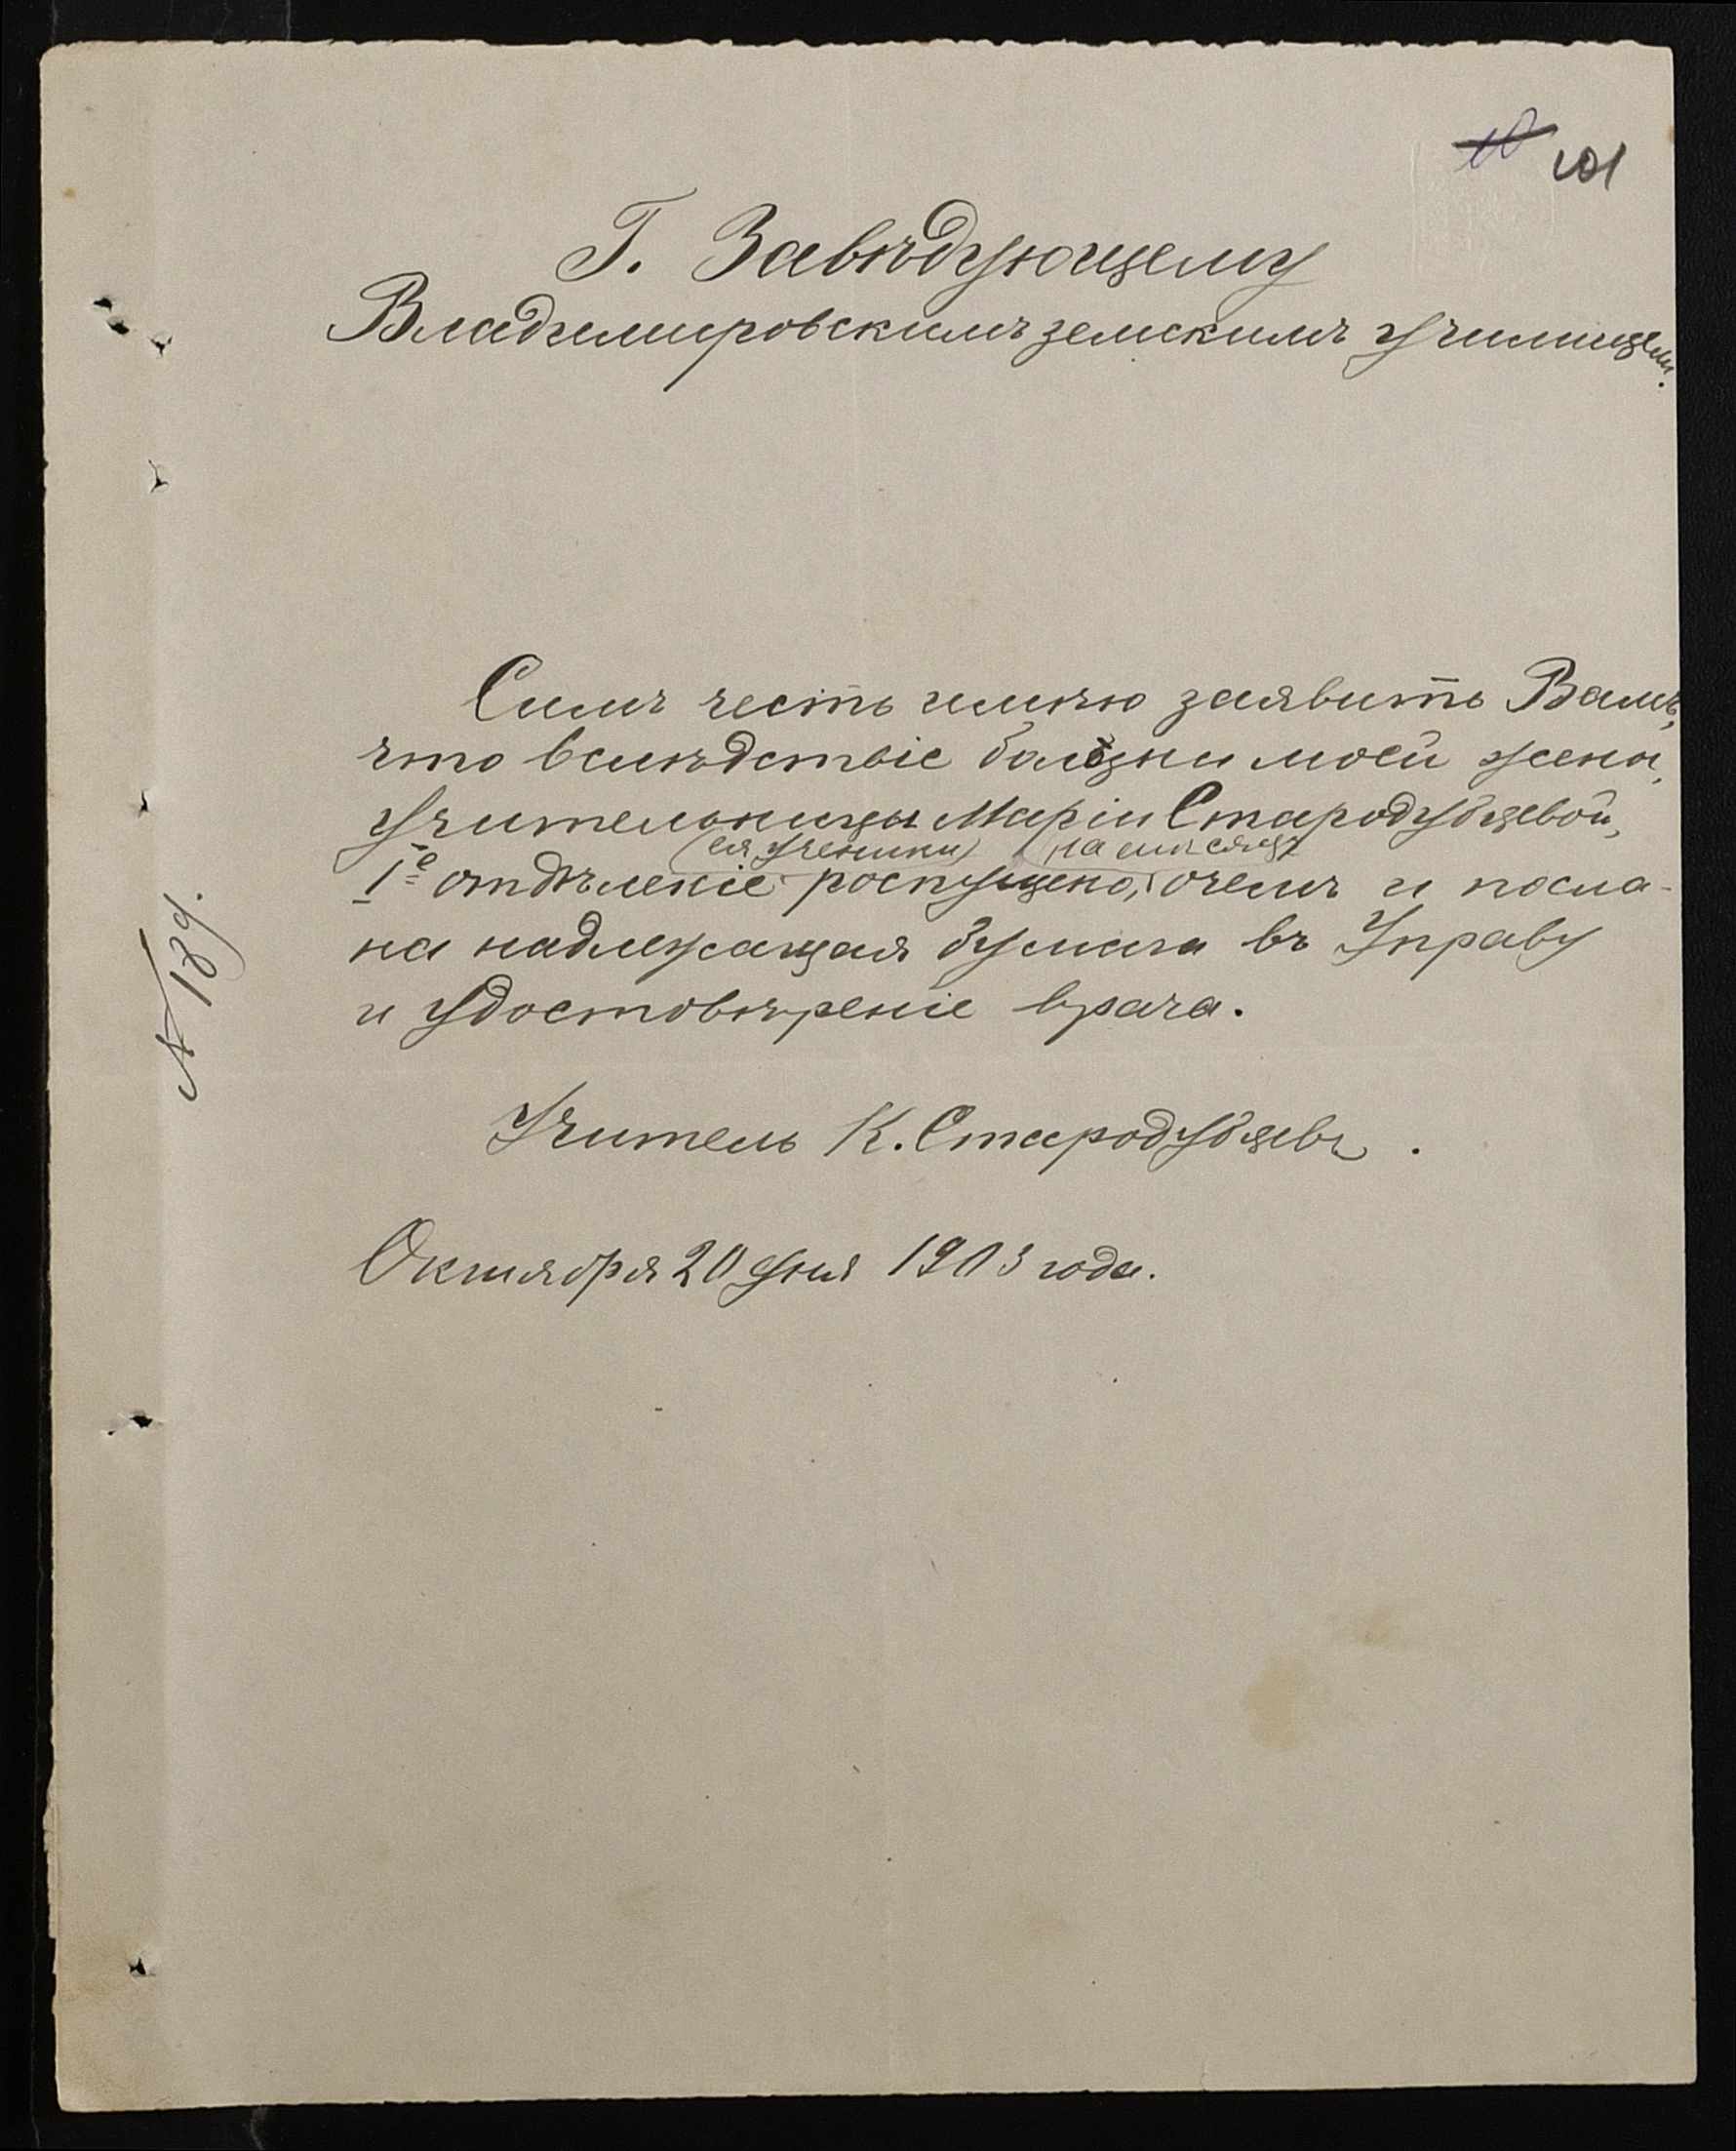 101
Г. Завѣдующему
Владимировскимъ земскимъ училищем.
Симъ честь имѣю заявить Вамъ,
что вслѣдствіе болѣзни моей жены,
учительницы Маріи Стародубцевой,
(ея ученики) на мѣсяцъ
1е отдѣленіе роспущено, о чемъ и посла-
на надлежащая бумага въ Управу
и удостовѣреніе врача.
Учитель К. Стародубцевъ.
Октября 20 дня 1903 года.
№ 189.